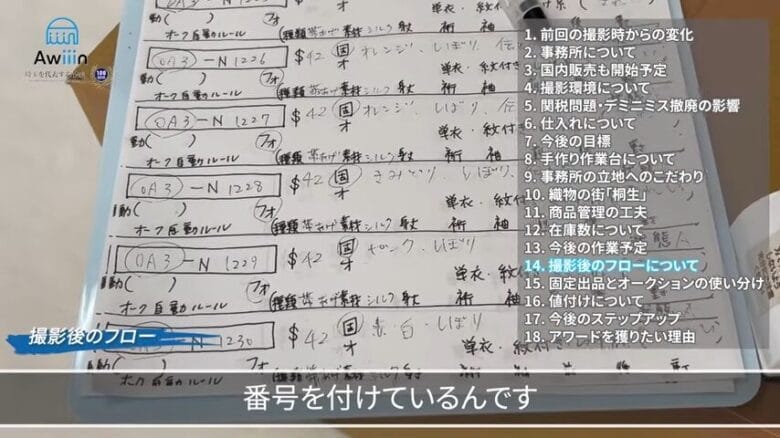 Awiiin
埼玉を代表する企業
100
1. 前回の撮影時からの変化
2. 事務所について
3. 国内販売も開始予定
4. 撮影環境について
5. 関税問題・デミニミス撤廃の影響
6. 仕入れについて
7. 今後の目標
8. 手作り作業台について
9. 事務所の立地へのこだわり
10. 織物の街「桐生」
11. 商品管理の工夫
12. 在庫数について
13. 今後の作業予定
14. 撮影後のフローについて
15. 固定出品とオークションの使い分け
16. 値付けについて
17. 今後のステップアップ
18. アワードを獲りたい理由
OA3 -N 1226 $42 国 オレンジ、しぼり、伝
動( ) フォ オ 単衣・紋付き
オーク自動ルール (種類 帯あげ 素材 シルク 身丈 裄 袖
OA3 -N 1227 $42 国 オレンジ、しぼり、伝
動( ) フォ オ 単衣・紋付
オーク自動ルール (種類 帯あげ 素材 シルク 身丈 裄 袖
OA3 -N 1228 $42 国 きみどり、しぼり、
動( ) フォ オ 単衣・紋付
オーク自動ルール (種類 帯あげ 素材 シルク 身丈 裄 袖
OA3 -N 1229 $42 国 ピンク、しぼり
動( ) フォ オ 単衣・紋付
オーク自動ルール (種類 帯あげ 素材 シルク 身丈 裄 袖
1230 $42 国 赤 白、しぼり
単衣・紋付き
撮影後のフロー
番号を付けているんです